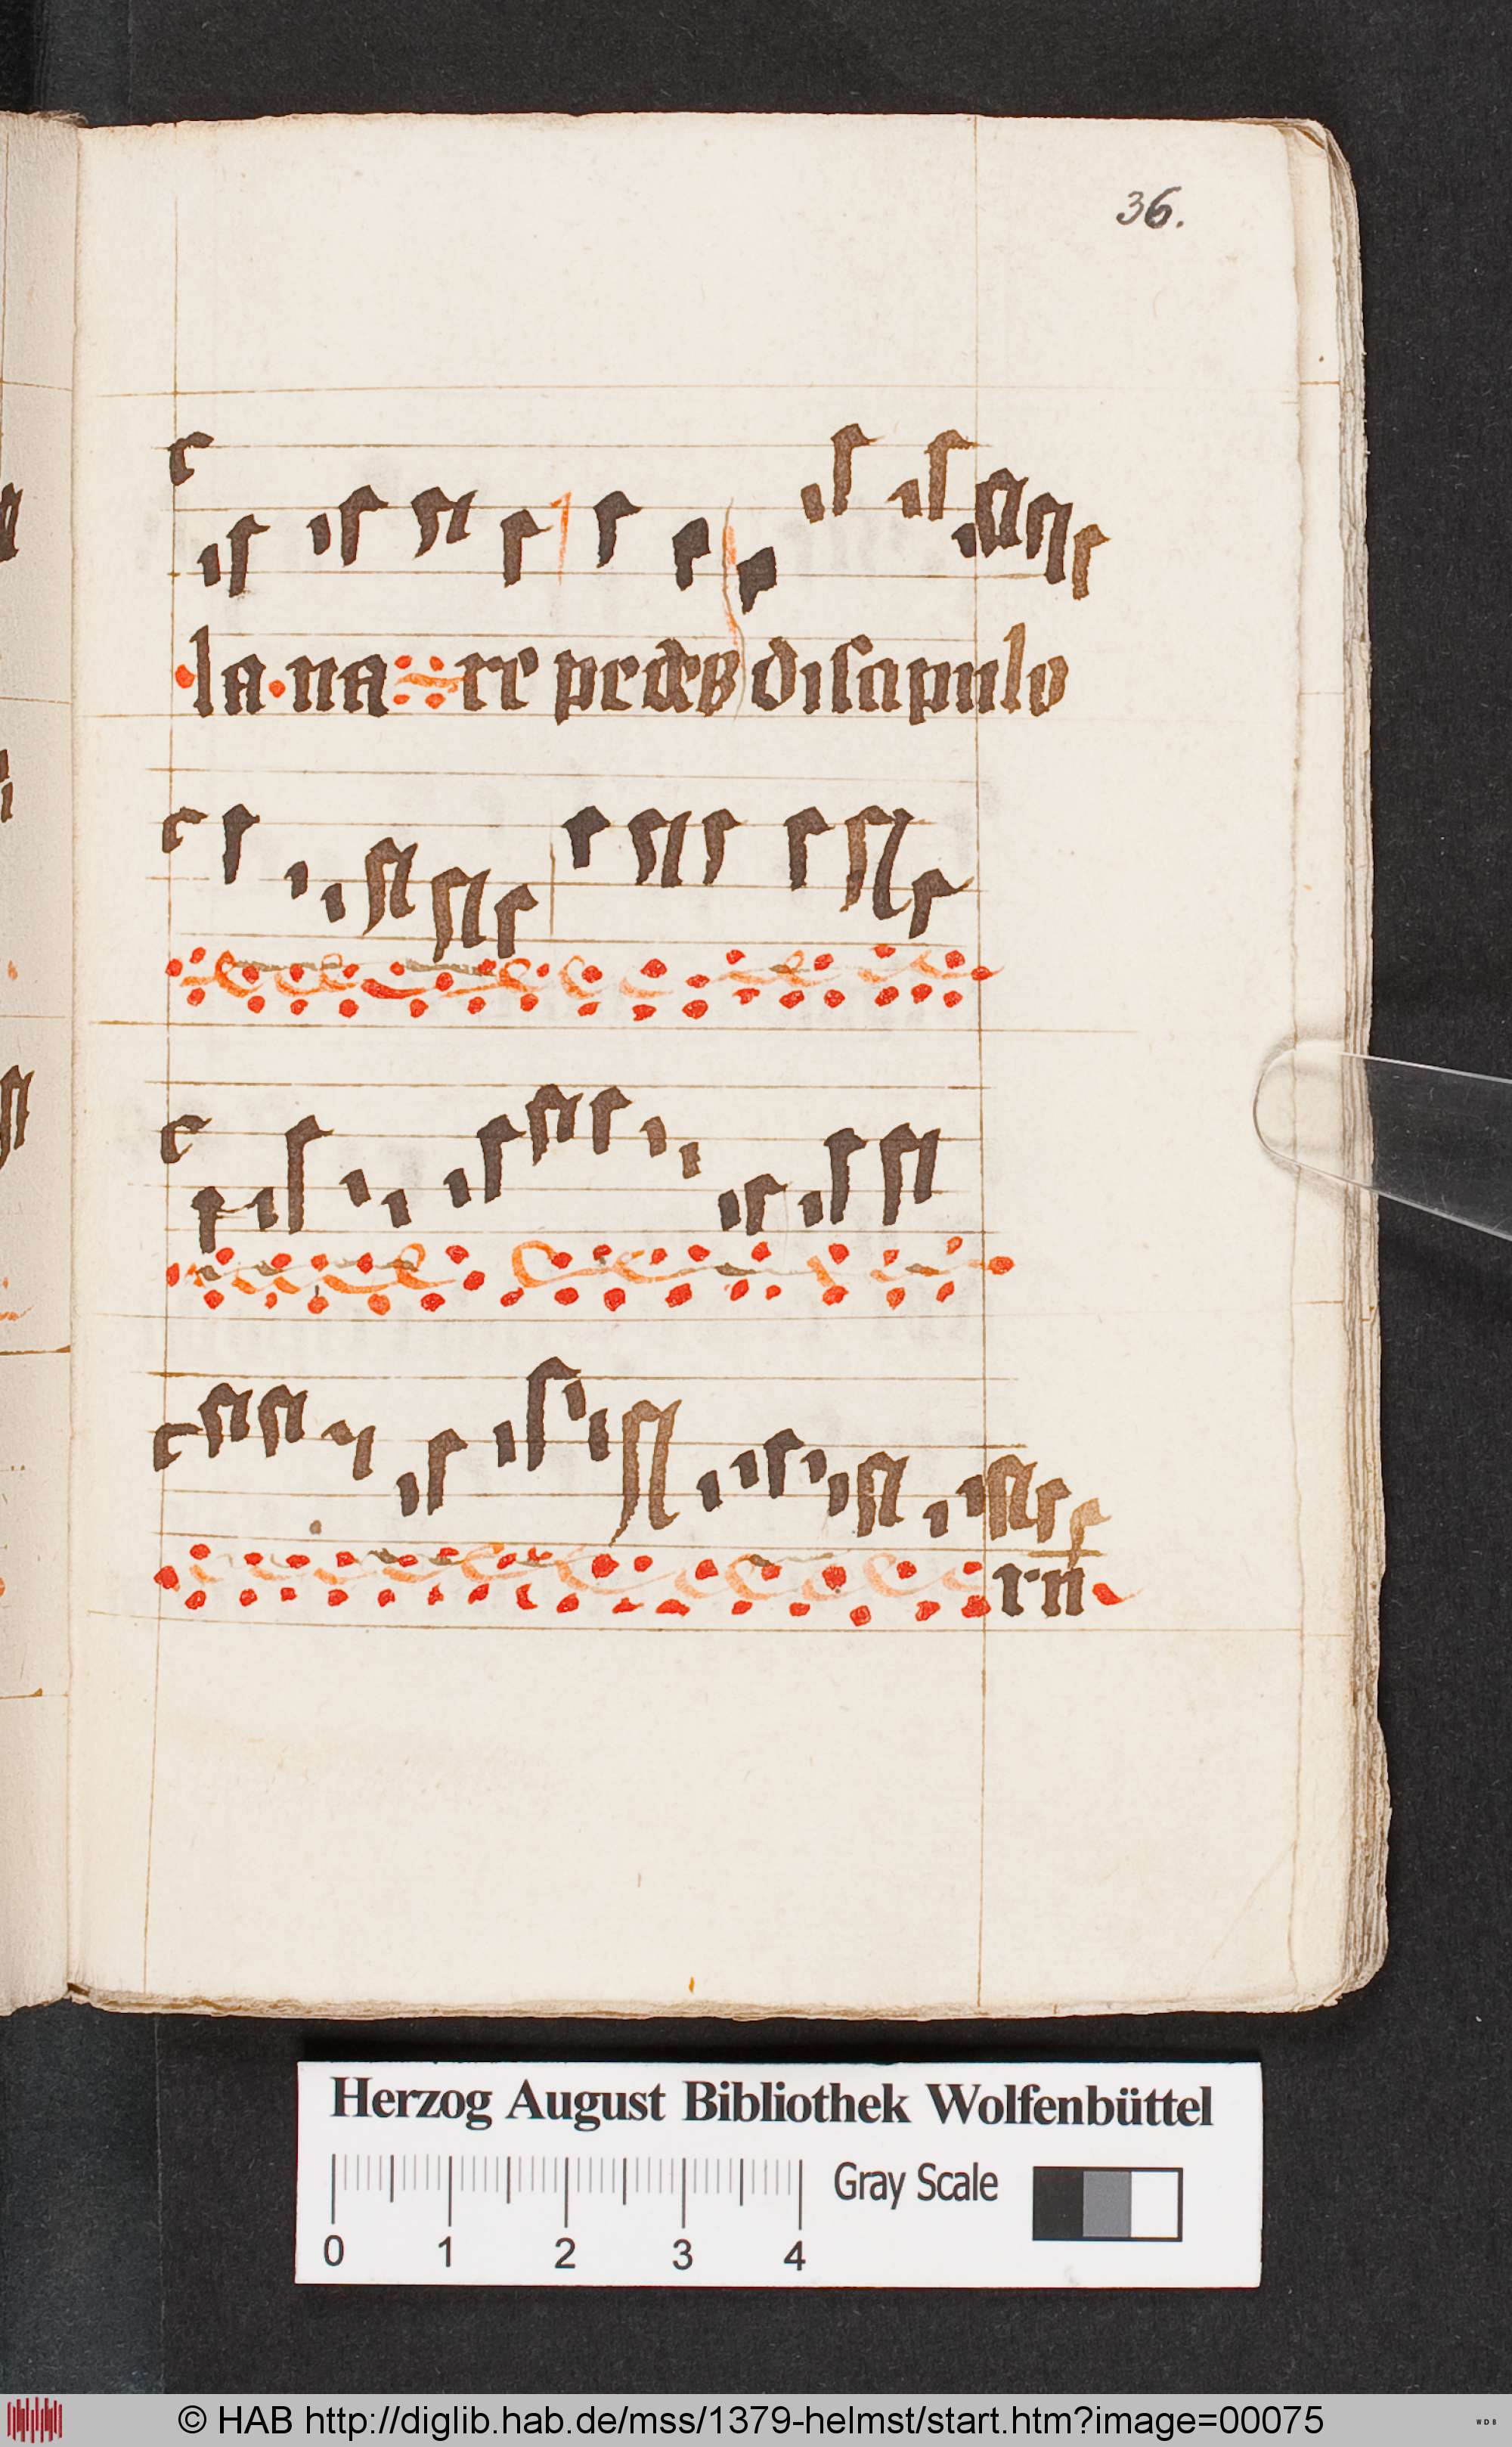 36.
la na re pedes discipulo
rn
Herzog August Bibliothek Wolfenbüttel
Gray Scale
0 1 2 3 4
© HAB http://diglib.hab.de/mss/1379-helmst/start.htm?image=00075
WDB